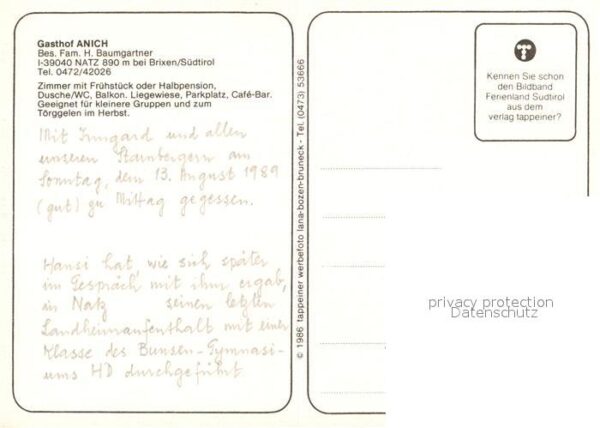 Gasthof ANICH
Bes. Fam. H. Baumgartner
I-39040 NATZ 890 m bei Brixen/Südtirol
Tel. 0472/42026
Zimmer mit Frühstück oder Halbpension,
Dusche/WC, Balkon. Liegewiese, Parkplatz, Café-Bar.
Geeignet für kleinere Gruppen und zum
Törggelen im Herbst.
Mit Irmgard und allen
unseren Starnbergern am
Sonntag, dem 13. August 1989
(gut) zu Mittag gegessen.
Hansi hat, wie sich später
im Gespräch mit ihm ergab,
in Natz seinen letzten
Landheimaufenthalt mit einer
Klasse des Bunsen-Gymnasi-
ums HD durchgeführt
© 1986 tappeiner werbefoto lana-bozen-bruneck - Tel. (0473) 53666
Kennen Sie schon
den Bildband
Ferienland Südtirol
aus dem
verlag tappeiner?
privacy protection
Datenschutz